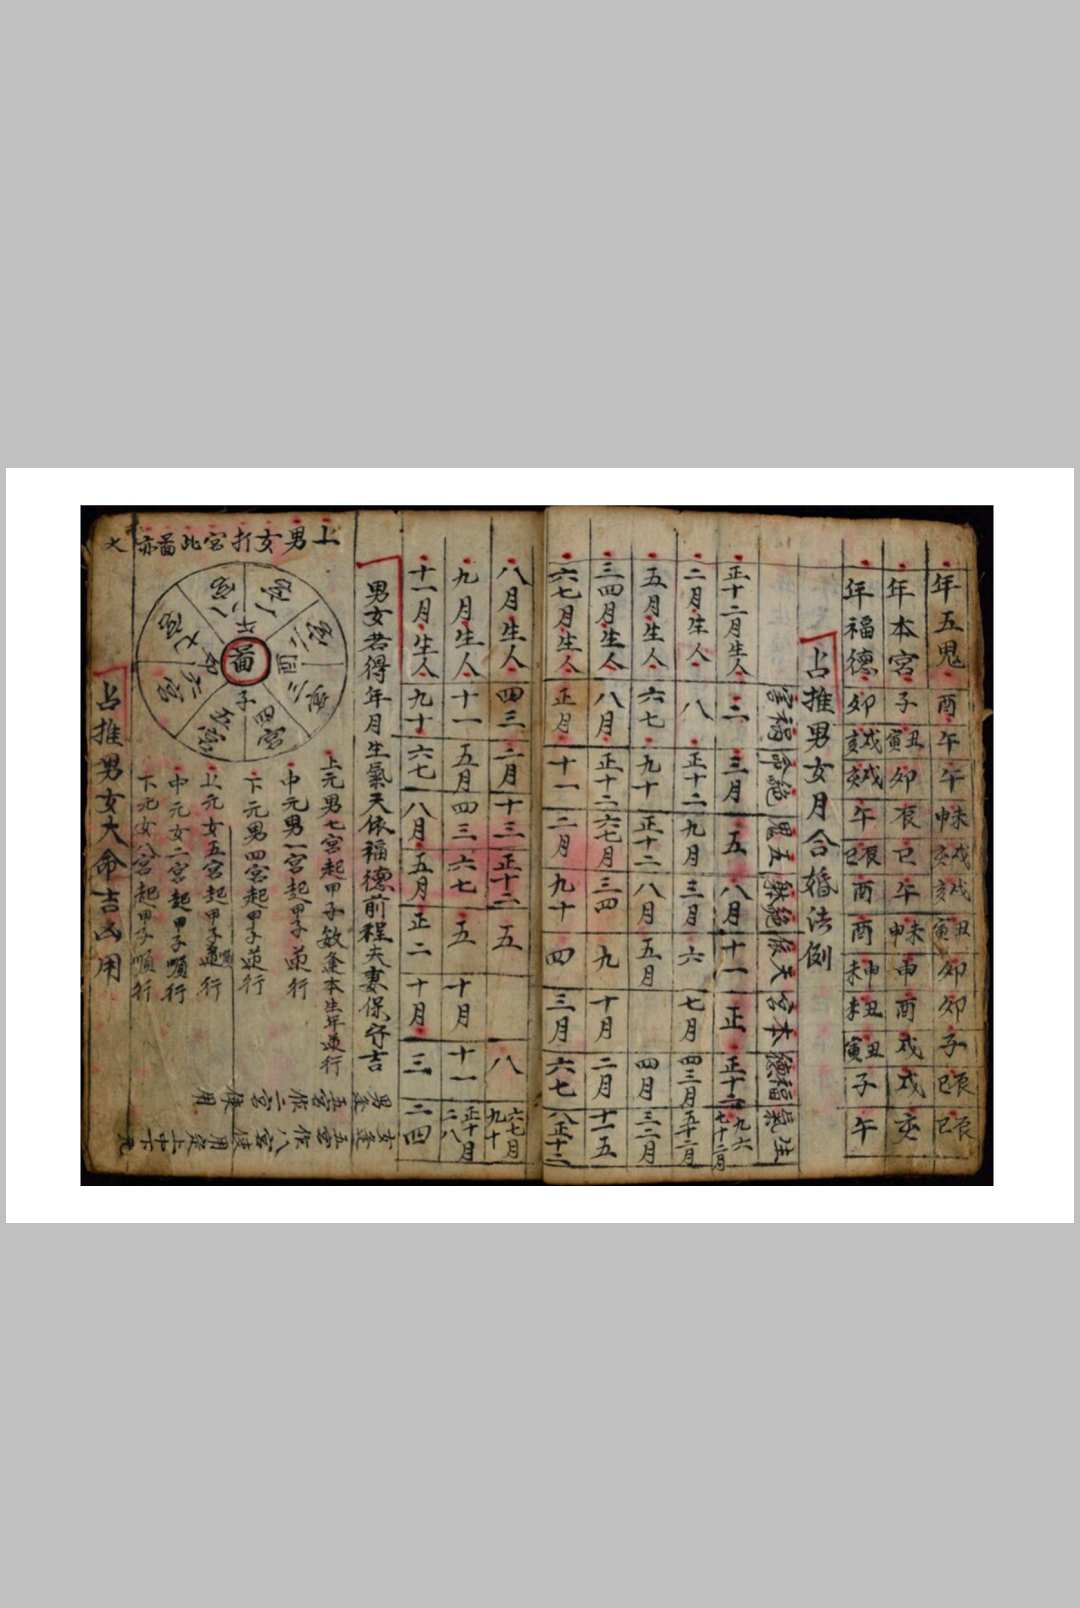 年五鬼 酉 午 午 未申 戌亥 戌亥 丑寅 卯 卯 子 辰巳 辰巳
年本宮 子 丑寅 卯 辰 巳 午 未申 酉 戌 戌 亥
年福德 卯 戌亥 戌亥 午 辰巳 酉 酉 申未 丑未 丑寅 子 午
占推男女月合婚法例
福 絕 五鬼 絕 天 本宮 福德 生氣
正十二月生人 二 三月 五 八月 十一 正 正十二 九六七十二月
二月生人 八 正十二 九月 三月 六 七月 四三月
五月生人 六七 九十 正十二 八月 五月 四月 三二月
三四月生人 八月 正十二 六七月 三四 九 十月 二月 十一五
六七月生人 正月 十一 二月 九十 四 三月 六七 八正十二
八月生人 四三 二月 十三 正十二 五 八 六七月九十
九月生人 十一 五月 四三 六七 五 十月 十一 正十月二八
十一月生人 九十 六七 八月 五月 正二 十月 三 二四
男女若得年月生氣天依福德前程夫妻保守吉
上男女打宮此啚亦大
啚
上元男七宮起甲子 逢本生年逆行
中元男一宮起甲子逆行
下元男四宮起甲子逆行
上元女五宮起甲子 行
中元女二宮起甲子順行
下元女八宮起甲子順行
男逢五宮作二宮使用
女逢五宮作八宮使用 上中下元
占推男女大命吉凶用